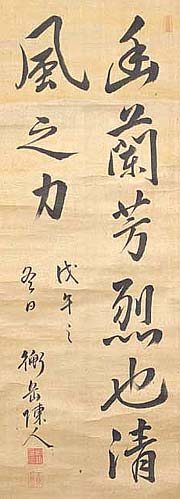 幽蘭芳烈也清
風之力
戊午之
冬日 衡岳陳人